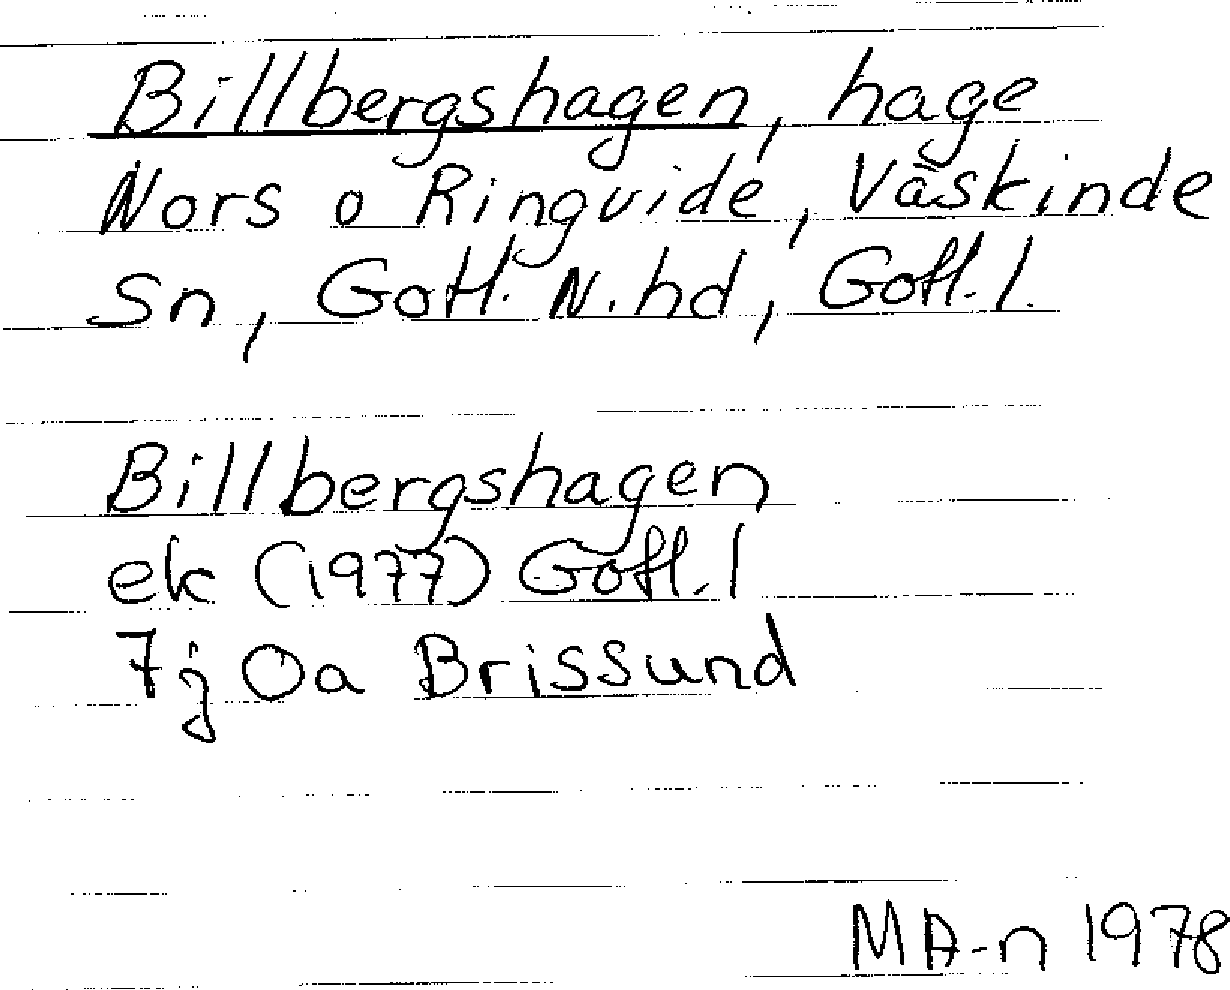 Billbergshagen, hage
Nors o Ringvide, Väskinde
Sn, Gotl. N. hd, Gotl. l.
Billbergshagen
ek (1977) Gotl. l
7j 0a Brissund
MA-n 1978